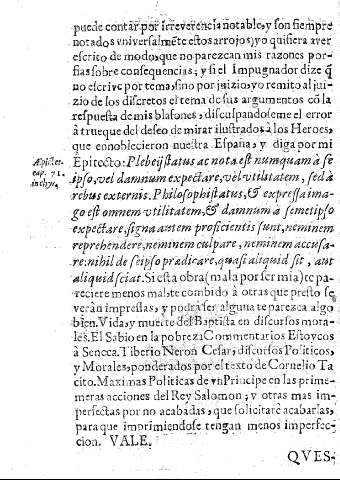 puede contar por irreverencia ñotable, y son siempre
notados vniversalmẽte estos arrojos) yo quisiera aver
escrito de modo, que no pareziesen mis razones por-
fias sobre consequencias; y si el Impugnador dize q̃
no escrive por tema, sino por juizio, yo remito al jui-
zio de los discretos el tema de sus argumentos cõ la
respuesta de mis blasones, disculpandoseme el error
à trueque del deseo de mirar ilustrados à los Heroes,
que ennoblecieron nuestra España, y diga por mi
Epitecto: Plebeij status ac nota est numquam à se
ipso, vel damnum expectare, vel vtilitatem, sed à
rebus externis. Philosophi status, & expressa ima-
go est omnem vtilitatem, & damnum à semetipso
expectare, signa autem proficientis sunt, neminem
reprehendere, neminem culpare, neminem accusa-
re: nihil de seipso prædicare, quasi aliquid sit, aut
aliquid sciat. Si esta obra (mala por ser mia) te pa-
reciere menos mal, te combido à otras que presto se
veràn impressas, y podrà ser alguna te parezca algo
bien. Vida, y muerte del Baptista en discursos mora-
les. El Sabio en la pobreza: Commentarios Estoycos
à Seneca. Tiberio Neron Cesar, discursos Politicos,
y Morales, ponderados por el texto de Cornelio Ta
cito. Maximas Politicas de vn Principe en las prime-
meras acciones del Rey Salomon; y otras mas im-
perfectas por no acabàdas, que solicitarè acabarlas,
para que imprimiendose tengan menos imperfec-
cion. VALE.
QVES-
Æpictet.
cap. 71.